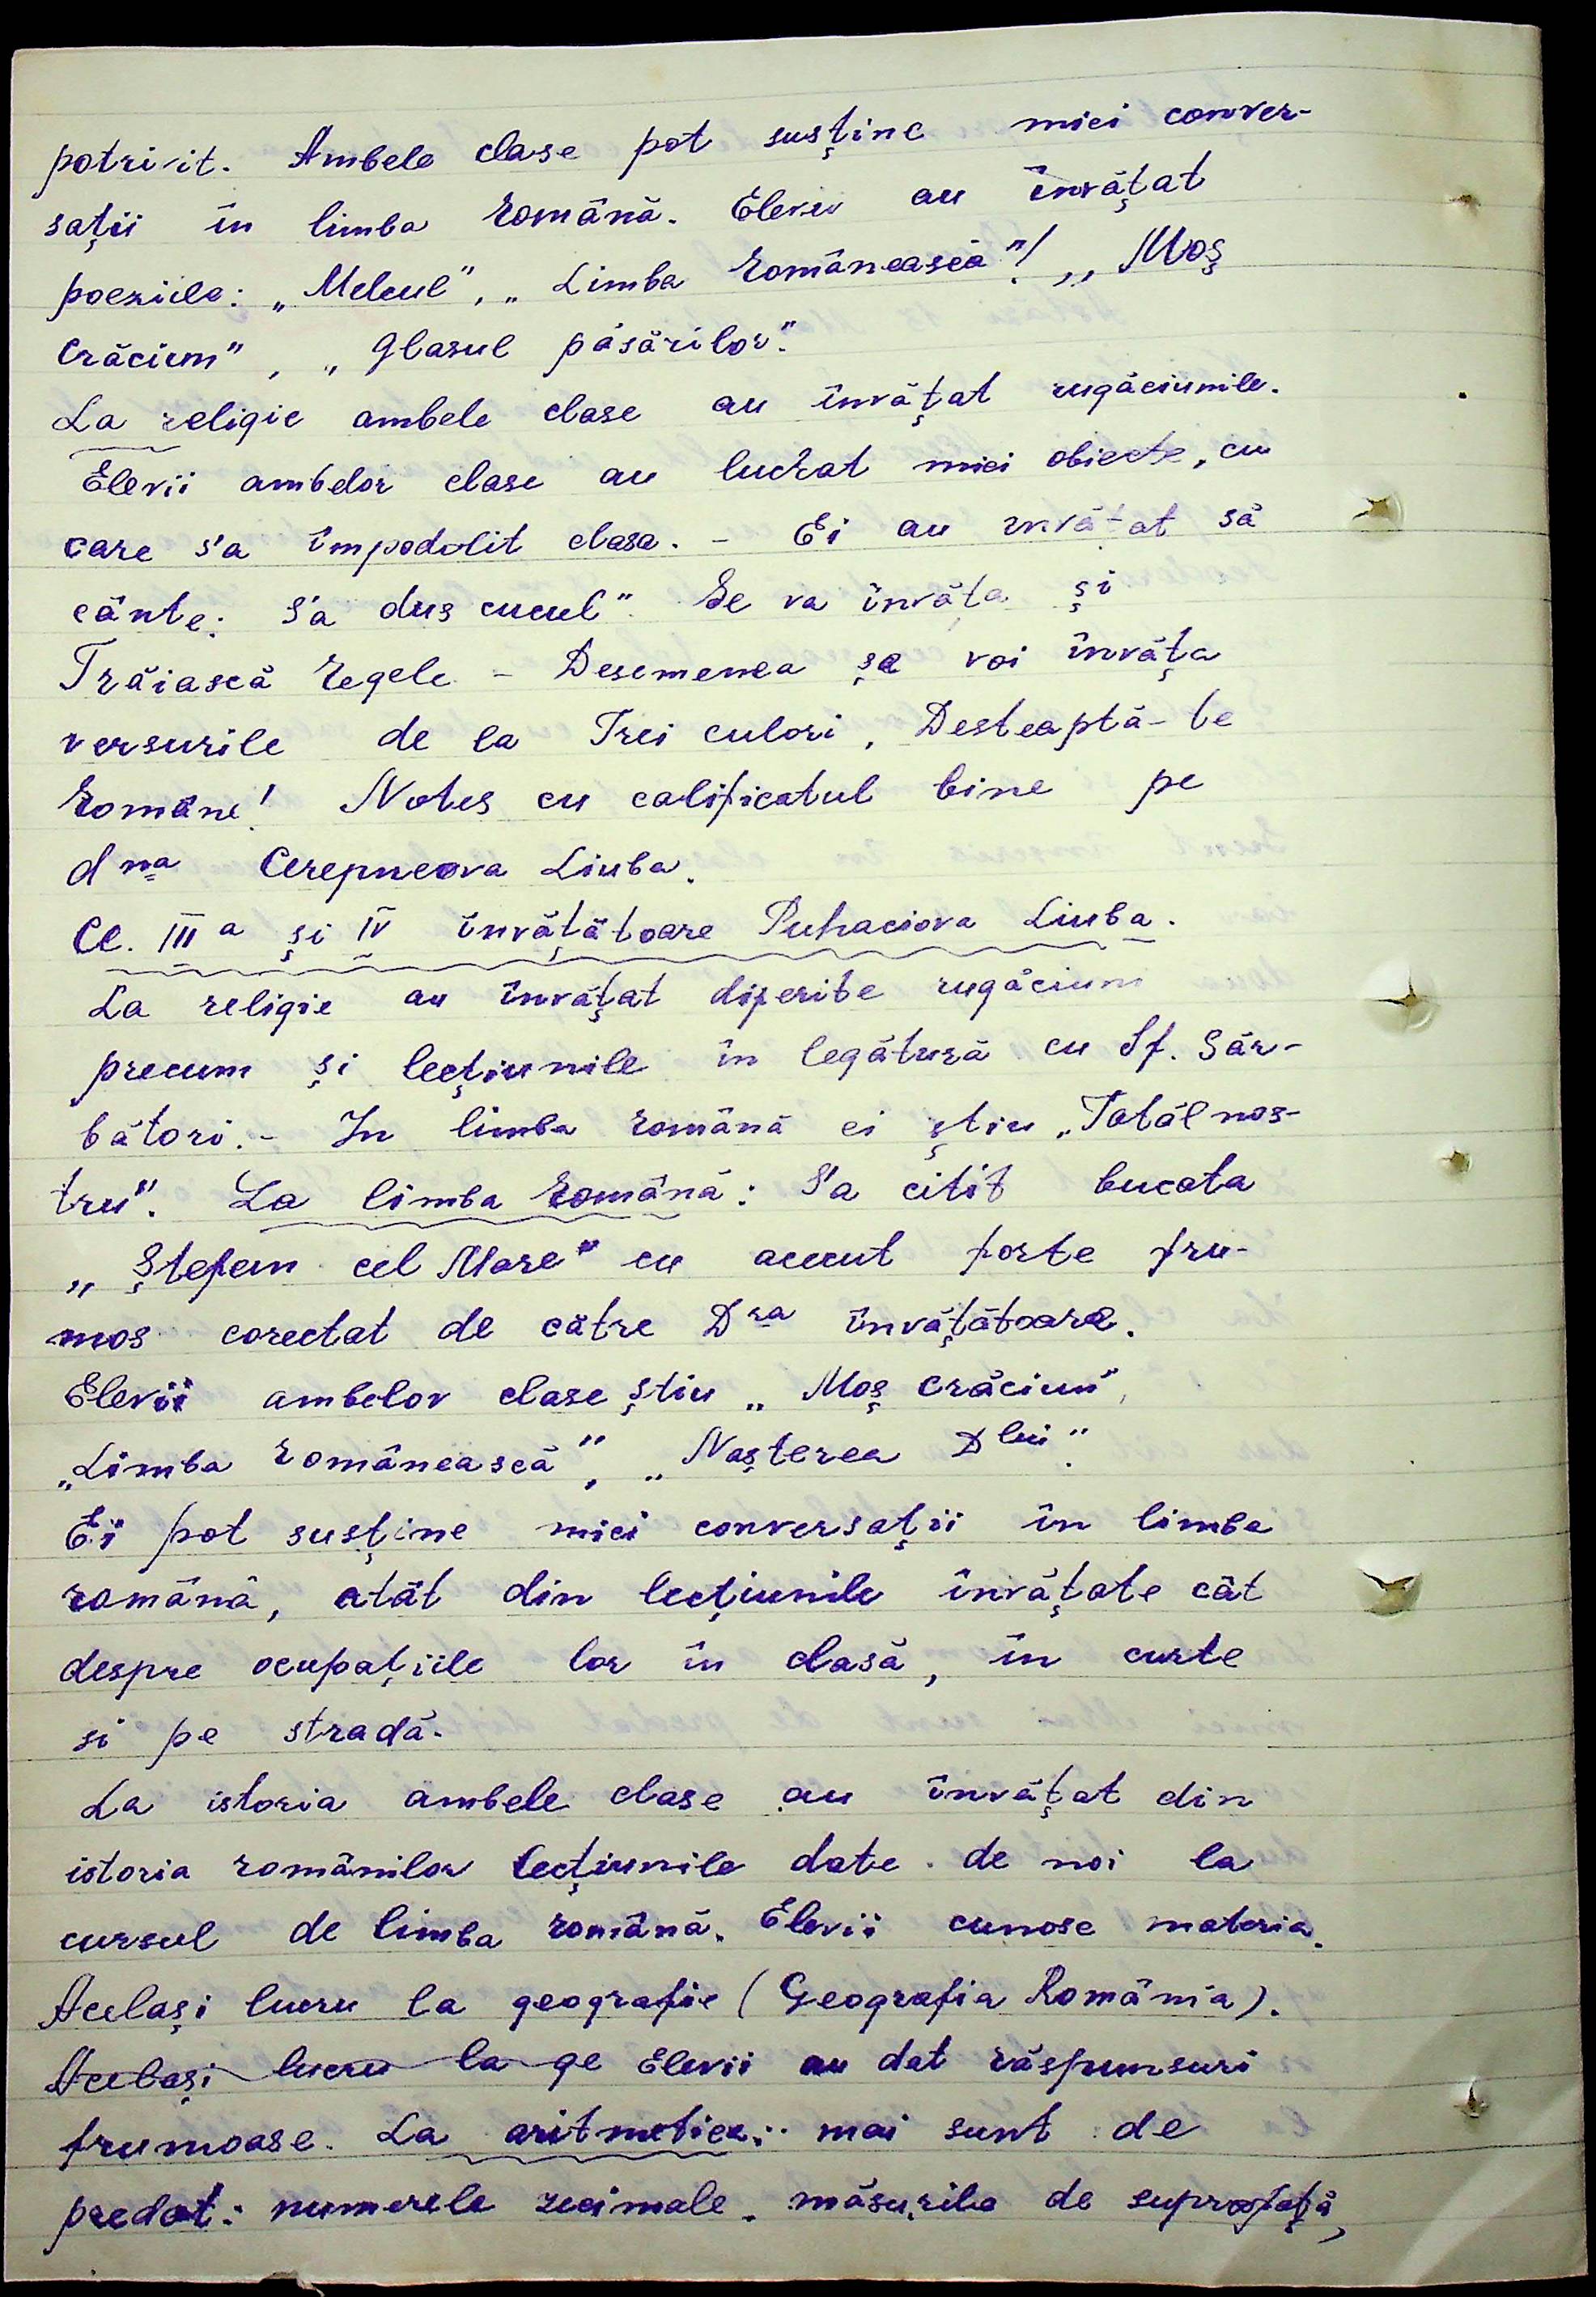 potrivit. Ambele clase pot susține mici conver-
sații în limba română. Elevii au învățat
poeziile: „Melcul", „Limba Românească"!, „Moș
Crăciun", „Glasul păsărilor".
La religie ambele clase au învățat rugăciunile.
Elevii ambelor clase au lucrat mici obiecte, cu
care s'a împodobit clasa. - Ei au învățat să
cânte: S'a dus cucul" Se va învăța și
Trăiască Regele - Desemenea se voi învăța
versurile de la Trei culori, Desteaptă-te
Române! Notes cu calificatul bine pe
dna Cerepneova Liuba.
Cl. III a și IV învățătoare Puhaciova Liuba.
La religie au învățat diferite rugăciuni
precum și lecțiunile în legătură cu Sf. Săr-
bători. - In limba română ei știu „Tatăl nos-
tru". La limba Română: S'a citit bucata
„Ștefan cel Mare" cu accent forte fru-
mos corectat de către Dra învățătoare.
Elevii ambelor clase știu „Moș Crăciun",
„Limba Românească", „Nașterea Dlui".
Ei pot susține mici conversații în limba
română, atât din lecțiunile învățate cât
despre ocupațiile lor în clasă, în curte
si pe stradă.
La istoria ambele clase au învățat din
istoria românilor lecțiunile date de noi la
cursul de limba română. Elevii cunosc materia.
Același lucru la geografie (Geografia România).
Același lucru la ge Elevii au dat răspunsuri
frumoase. La aritmetica: mai sunt de
predat: numerele zecimale, măsurile de suprafață,